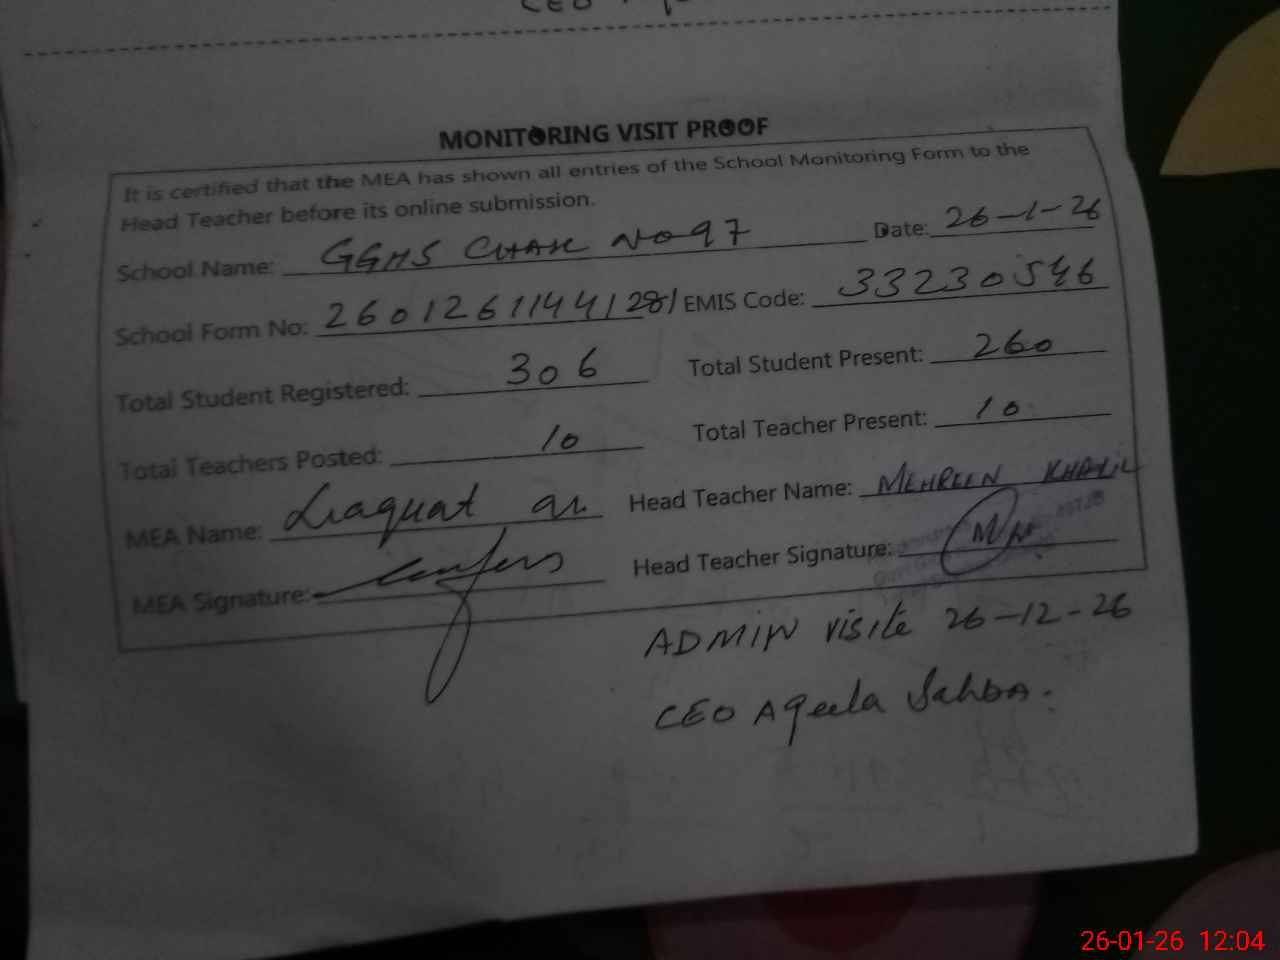 CEO
MONITORING VISIT PROOF
It is certified that the MEA has shown all entries of the School Monitoring Form to the
Head Teacher before its online submission.
School Name: GGHS CHAK NO 97 Date: 26-1-26
School Form No: 26012611441281 EMIS Code: 33230546
Total Student Registered: 306 Total Student Present: 260
Total Teachers Posted: 10 Total Teacher Present: 10
MEA Name: Liaquat Ali Head Teacher Name: MEHREEN KHALIL
MEA Signature: Head Teacher Signature:
ADMIN visite 26-12-26
CEO Aqeela Sahba.
26-01-26 12:04